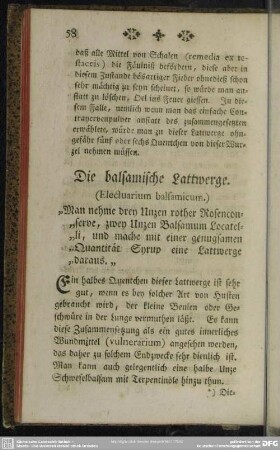 58
daß alle Mittel von Schalen (remedia ex te-
staceis) die Fäulniß befördern, diese aber in
diesem Zustande bösartiger Fieber ohnedieß schon
sehr mächtig zu seyn scheinet, so würde man an-
statt zu löschen, Oel ins Feuer giessen. In die-
sem Falle, nemlich wenn man das einfache Con-
trayervenpulver anstatt des zusammengesetzten
erwählete, würde man zu dieser Lattwerge ohn-
gefähr fünf oder sechs Quentchen von dieser Wur-
zel nehmen müssen.
Die balsamische Lattwerge.
(Electuarium balsamicum.)
„Man nehme drey Unzen rother Rosencon-
„serve, zwey Unzen Balsamum Locatel-
„li, und mache mit einer genugsamen
„Quantität Syrup eine Lattwerge
„daraus. „
Ein halbes Quentchen dieser Lattwerge ist sehr
gut, wenn es bey solcher Art von Husten
gebraucht wird, der kleine Beulen oder Ge-
schwüre in der Lunge vermuthen läßt. Es kann
diese Zusammensetzung als ein gutes innerliches
Wundmittel (vulnerarium) angesehen werden,
das daher zu solchem Endzwecke sehr dienlich ist.
Man kann auch gelegentlich eine halbe Unze
Schwefelbalsam mit Terpentinöle hinzu thun.
*) Die-